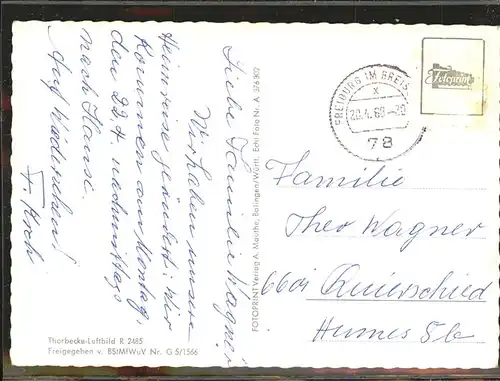 Liebe Familie Wagner
Wir haben unsere
Heimreise geändert: Wir
kommen am Montag,
den 22.4. nachmittags
nach Hause.
Auf Wiedersehen!
F. Koch
Thorbecke-Luftbild R 2485
Freigegeben v. BStMfWuV Nr. G 5/1566
FOTOPRINT Verlag A. Mauthe, Balingen/Württ. Echt Foto Nr. A 356 302
FREIBURG IM BREIS
20.4.68
78
Fotoprint
Familie
Theo Wagner
6601 Quierschied
Humes Str